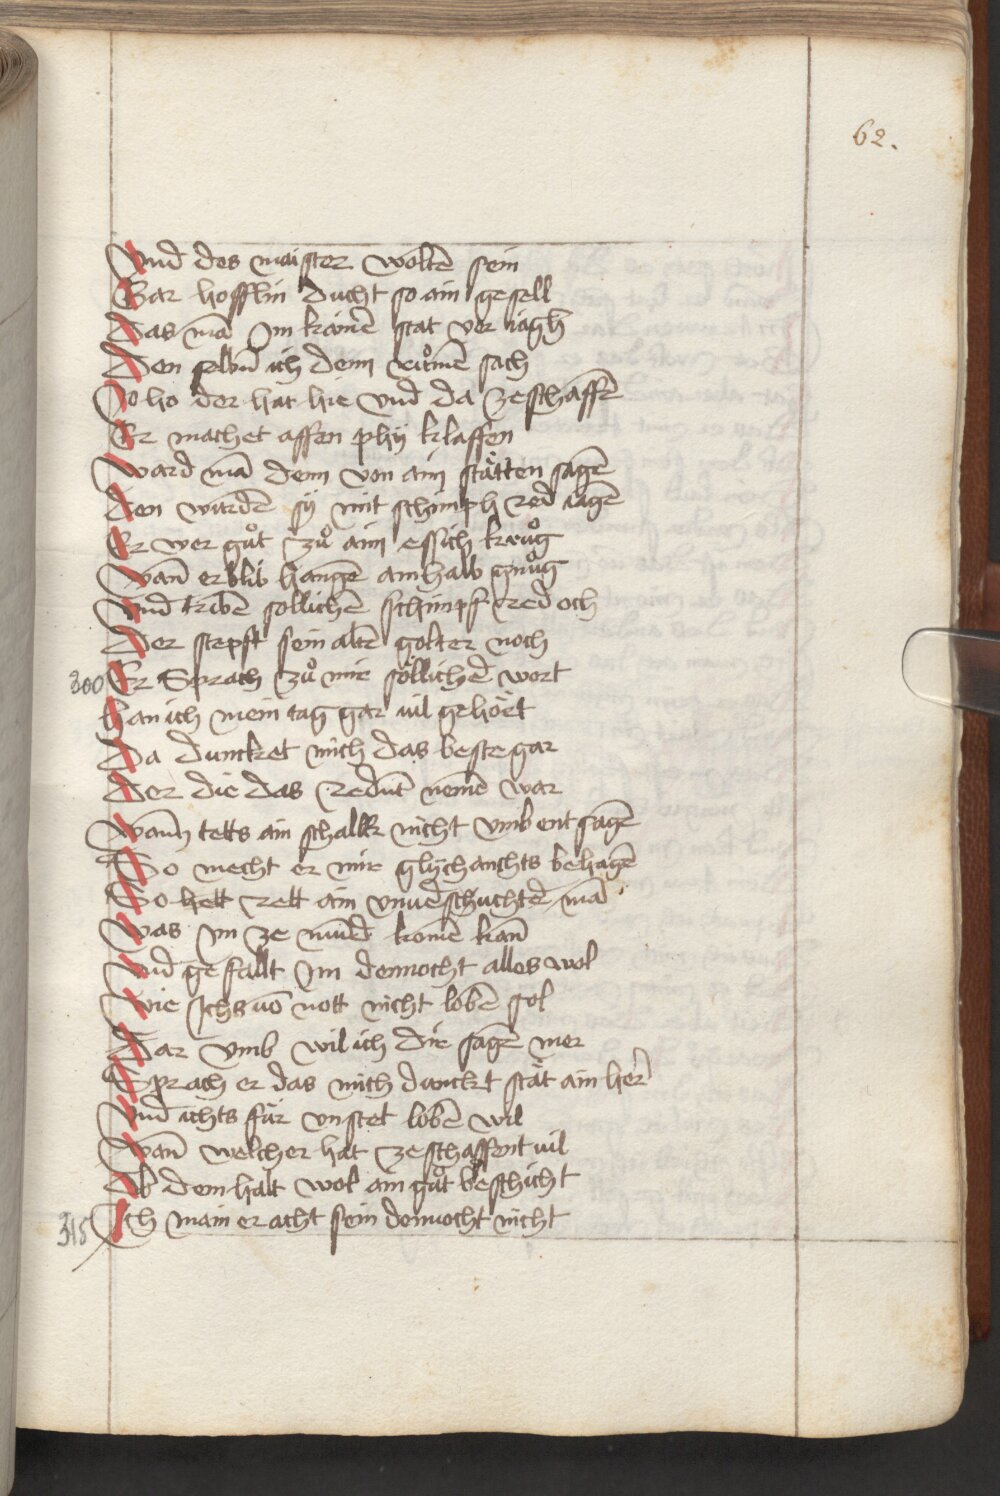 62.
Vnd des maister woltē sein
Gar hofflin ducht so ain gesell
Das mā Im kainē stat ver iagh
Den selbn̄ ich dem růmē sach
So ho der hat hie vnd da ze schaffē
Er machet affen phÿ klaffen
Ward mā dem von aim stätten sagē
Den wurdē sÿ mit schimph red iagē
Er wer gůt zů aim essich krůg
Wan̄ er blib hangē amhalb gnůg
Vnd tribē sollichē schimpf red och
Der stepft sein altē golter noch
300 Er Sprach zů mir söllicher wort
Han ich mein tag gar uil gehört
Da duncket mich das beste gar
Der die das redn̄t nemē war
Wann tetts ain schalk nicht vmb ent sagē
So mecht er mir glych anchts behagē
So hett rett ain vnuerschuchter mā
Was Im ze mund komē kan̄
Vnd gefallt Im dennocht alles wol
Wie Ichs vō nott nicht lobē sol
Dar vmb wil ich dir sagē mer
Sprach er das mich dunckt stät ain her
Vnd ichts für vnstet lobē wil
Wan̄ welcher hat ze schaffent uil
Ob dem halt wol ain gůt beschicht
315 Ich main er acht sein dennocht nicht